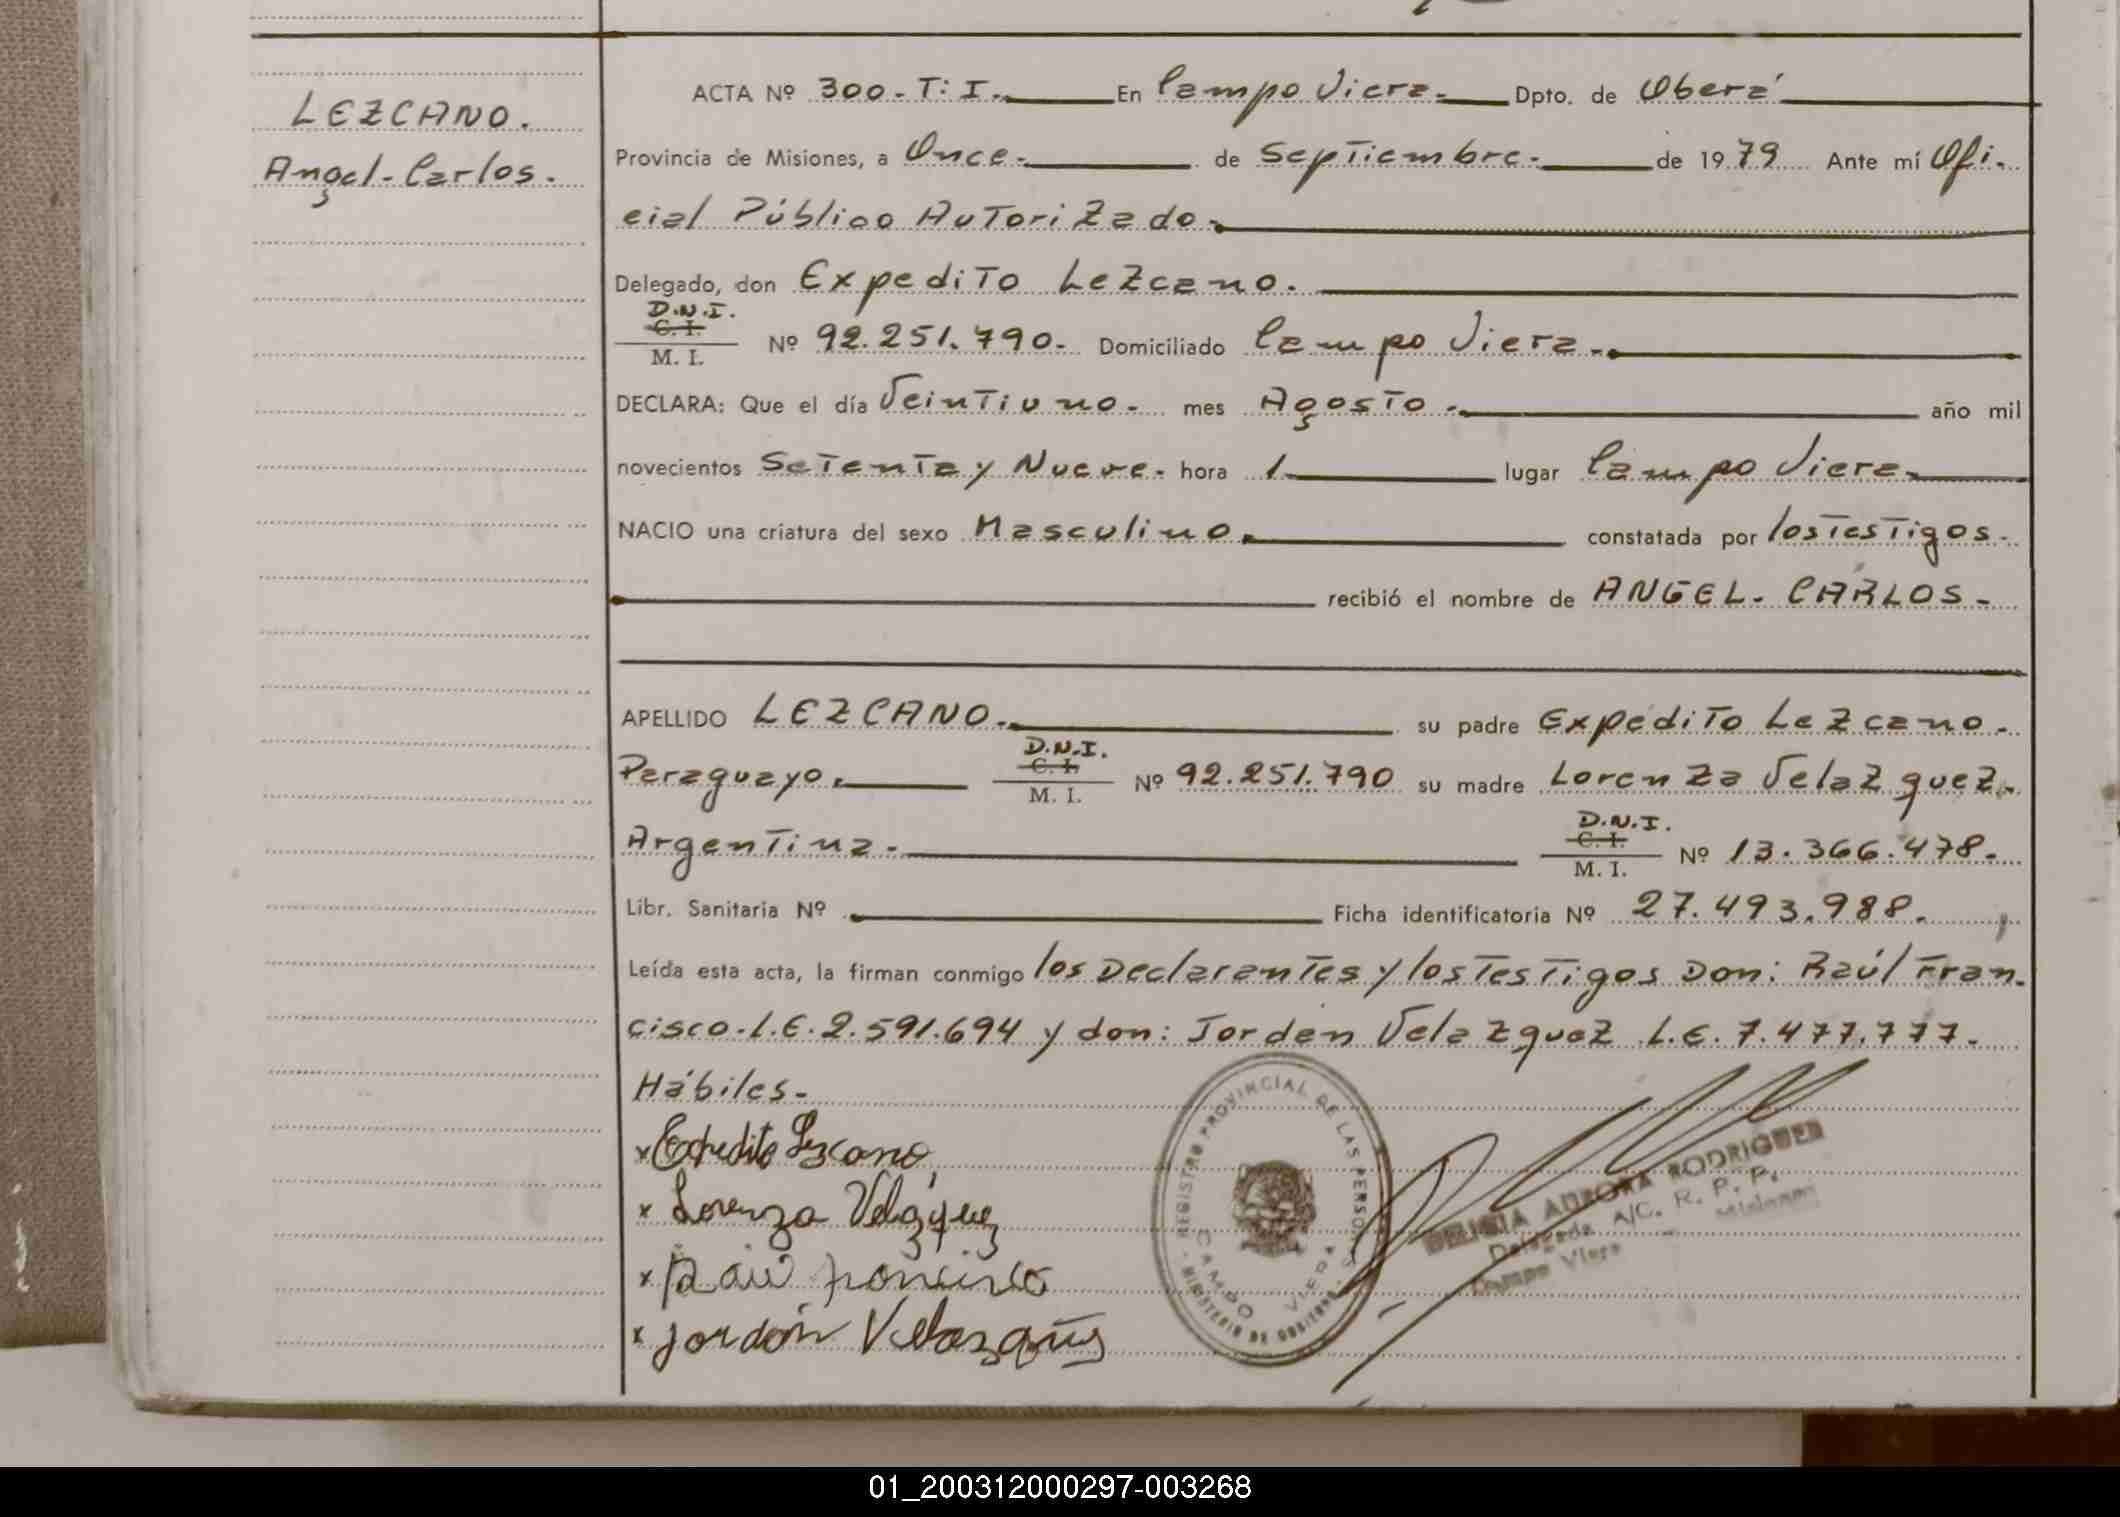 LEZCANO.
Angel-Carlos.
ACTA Nº 300-T: I. En Campo Viera. Dpto. de Oberá
Provincia de Misiones, a Once. de Septiembre. de 1979 Ante mí Ofi.
cial Público Autorizado.
Delegado, don Expedito Lezcano.
D.N.I.
C. I.
M. I.
Nº 92.251.790. Domiciliado Campo Viera.
DECLARA: Que el día Veintiuno. mes Agosto. año mil
novecientos Setenta y Nueve. hora 1 lugar Campo Viera.
NACIO una criatura del sexo Masculino. constatada por los testigos.
recibió el nombre de ANGEL. CARLOS.
APELLIDO LEZCANO. su padre Expedito Lezcano.
Paraguayo. D.N.I. C. I. M. I. Nº 92.251.790 su madre Lorenza Velazquez.
Argentina. D.N.I. C. I. M. I. Nº 13.366.478.
Libr. Sanitaria Nº Ficha identificatoria Nº 27.493.988.
Leída esta acta, la firman conmigo los Declarantes y los testigos Don: Raúl Fran.
cisco. L.E. 2.591.694 y don: Jorden Velazquez L.E. 7.477.777.
Hábiles.
x Expedito Lezcano
x Lorenza Velázquez
x Raul Francisco
x Jordón Velazquez
REGISTRO PROVINCIAL DE LAS PERSONAS
MINISTERIO DE GOBIERNO
CAMPO VIERA
DELICIA AURORA RODRIGUEZ
Delegada A/C. R. P. P.
Campo Viera - Misiones
01_200312000297-003268